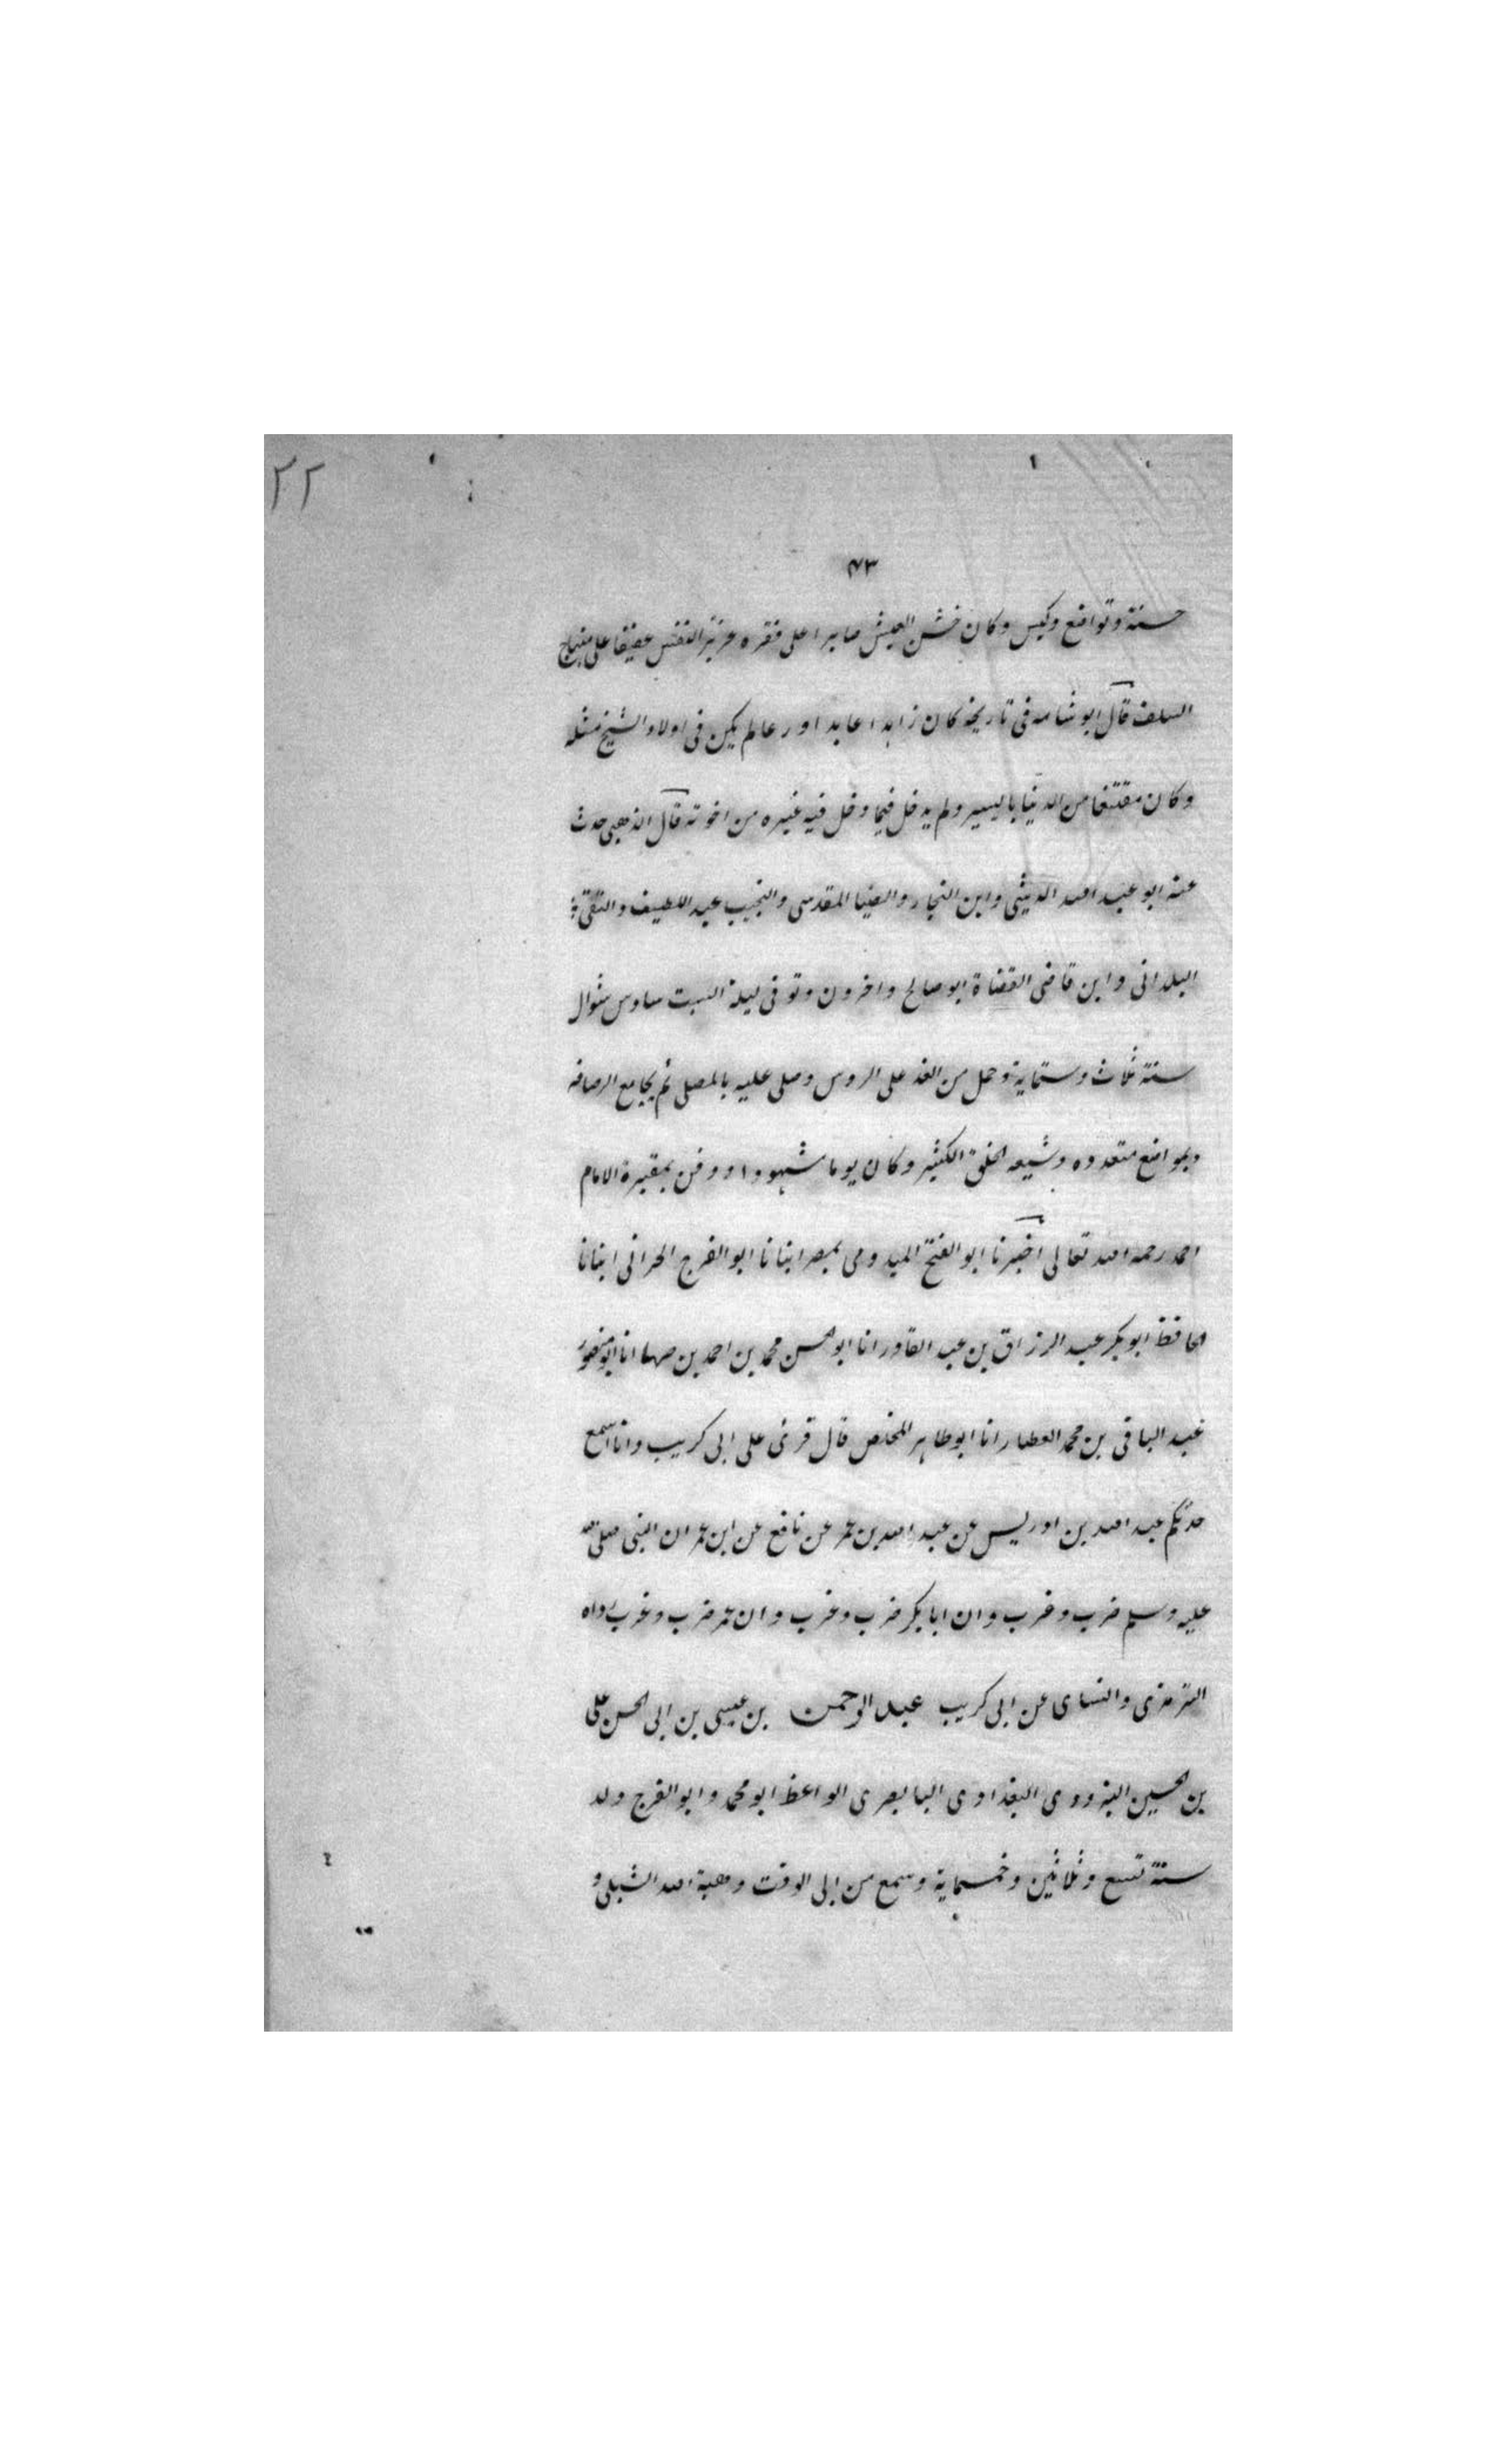 ٢٢
٤٣
حسنة وتواضع وكيس وكان خشن العيش صابرا على فقره عزيز النفس عفيفا على منهاج
السلف قال ابو شامه فى تاريخه كان زاهدا عابدا ورعا لم يكن فى اولاد الشيخ مثله
وكان مقتنعا من الدنيا باليسير ولم يدخل فيما دخل فيه غيره من اخوته قال الذهبى حدث
عنه ابو عبد الله الدبيثى وابن النجار والضيا المقدسى والنجيب عبد اللطيف والتقى
البلدانى وابن قاضى القضاة ابو صالح واخرون وتوفى ليلة السبت سادس شوال
سنة ثلاث وستماية وحمل من الغد على الروس وصلى عليه بالمصلى ثم بجامع الرصافه
وبمواضع متعدده وشيعه الخلق الكثير وكان يوما مشهودا ودفن بمقبرة الامام
احمد رحمه الله تعالى اخبرنا ابو الفتح الميدومى بمصر انبانا ابو الفرج الحرانى انبانا
الحافظ ابو بكر عبد الرزاق بن عبد القادر انا ابو الحسن محمد بن احمد بن صرما انا ابو منصور
عبد الباقى بن محمد العطار انا ابو طاهر المخلص قال قرئ على ابى كريب وانا اسمع
حدثكم عبد الله بن ادريس عن عبد الله بن عمر عن نافع عن ابن عمر ان النبى صلى الله
عليه وسلم ضرب وغرب وان ابا بكر ضرب وغرب وان عمر ضرب وغرب رواه
الترمذى والنساى عن ابى كريب عبد الرحمن بن عيسى بن ابى الحسن على
بن الحسين البزورى البغدادى البابصرى الواعظ ابو محمد وابو الفرج ولد
سنة تسع وثلاثين وخمسماية وسمع من ابى الوقت وهبة الله الشبلى و